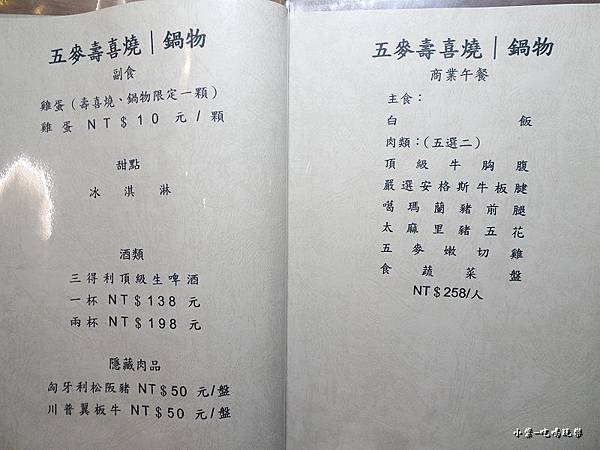 五麥壽喜燒｜鍋物
副食
雞蛋（壽喜燒、鍋物限定一顆）
雞蛋 NT＄10 元/顆
甜點
冰淇淋
酒類
三得利頂級生啤酒
一杯 NT＄138 元
兩杯 NT＄198 元
隱藏肉品
匈牙利松阪豬 NT＄50 元/盤
川普翼板牛 NT＄50 元/盤
五麥壽喜燒｜鍋物
商業午餐
主食：
白飯
肉類：（五選二）
頂級牛胸腹
嚴選安格斯牛板腱
噶瑪蘭豬前腿
太麻里豬五花
五麥嫩切雞
食蔬菜盤
NT＄258/人
小紫-吃喝玩樂